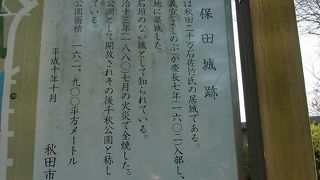 保田城跡
は秋田二十万石佐竹氏の居城である。
義宣(よしのぶ)が慶長七年(一六〇二)入部し、
地に築城した。
石垣のない城として知られている。
治十三年(一八八〇)七月の火災で全焼した。
公園として開放されその後千秋公園と称し
ている。
公園面積 一六二、九〇〇平方メートル
平成十年十月
秋田市